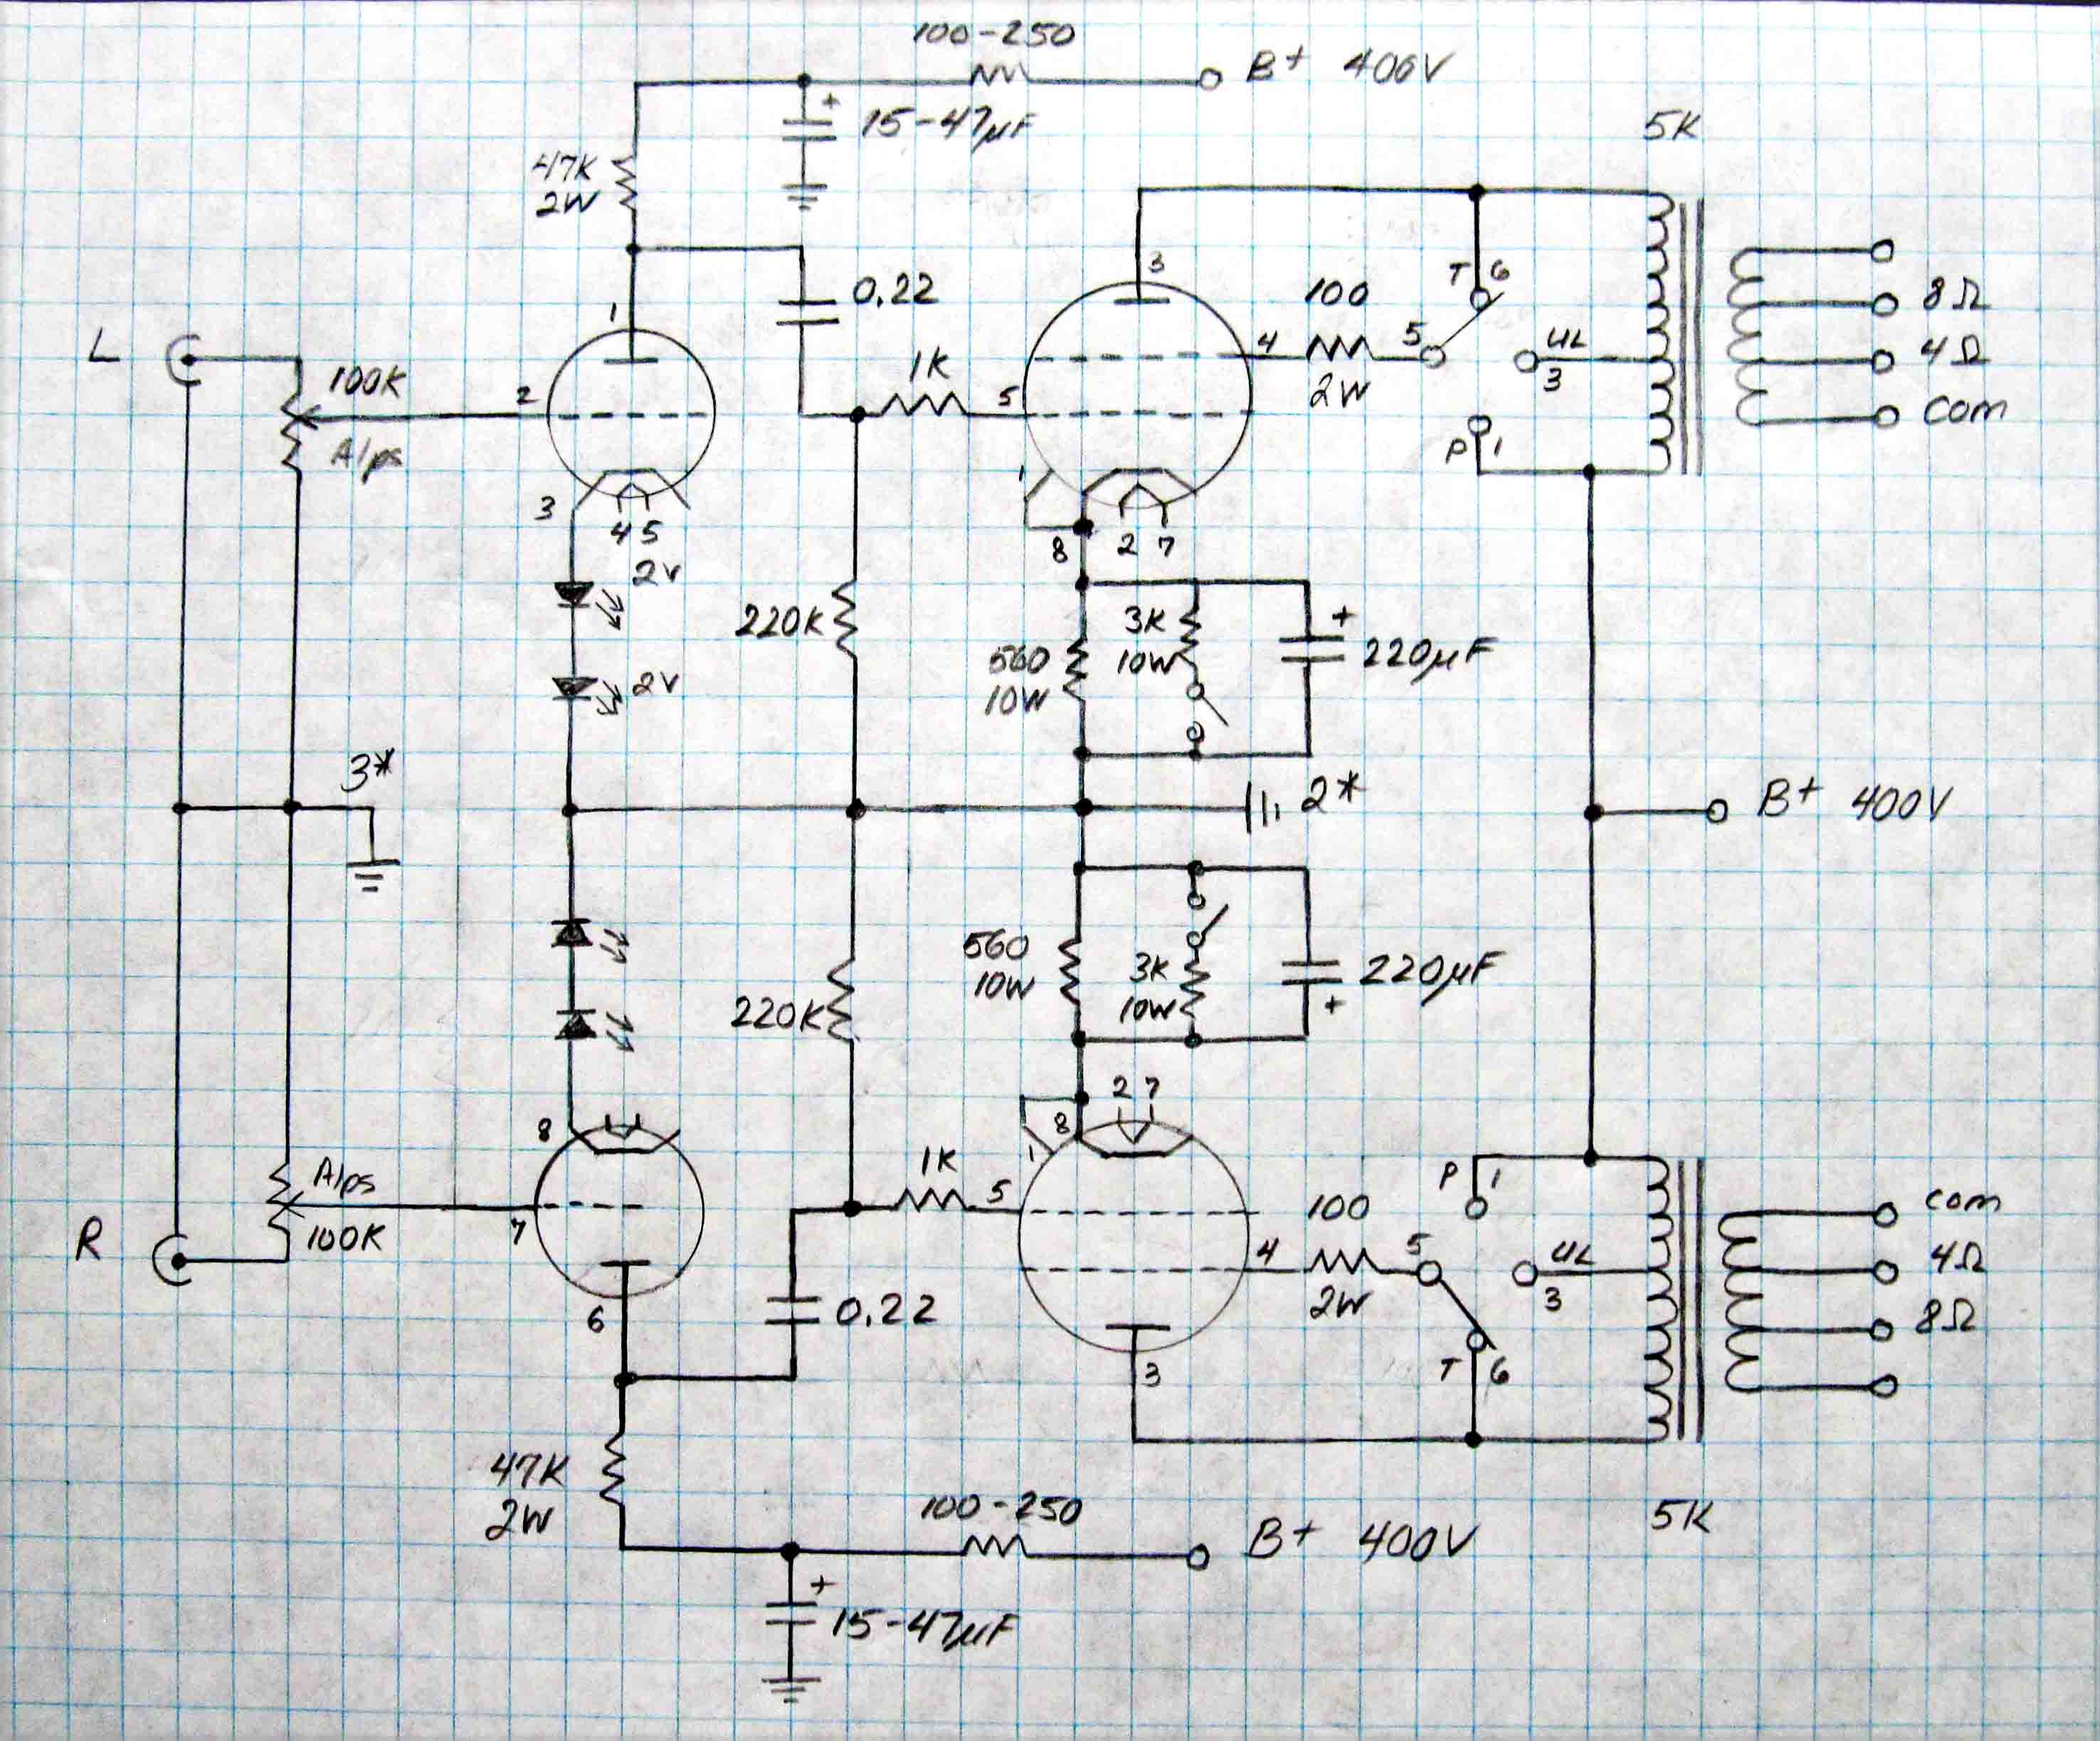 100-250
B+ 400V
15-47µF
5K
47K
2W
3
T 6
1
0.22
100
8Ω
L
5
UL
4Ω
1K
4
100K
2
5
2W
3
com
Alps
P 1
1
3
4 5
8
2 7
2V
3K
+
220K
10W
220µF
560
10W
2V
3*
2*
B+ 400V
560
10W
3K
10W
220µF
+
220K
2 7
8
8
1
P 1
1K
Alps
5
100
com
R
7
100K
4
5
UL
4Ω
2W
3
6
0.22
8Ω
3
T 6
47K
2W
100-250
5K
B+ 400V
+
15-47µF